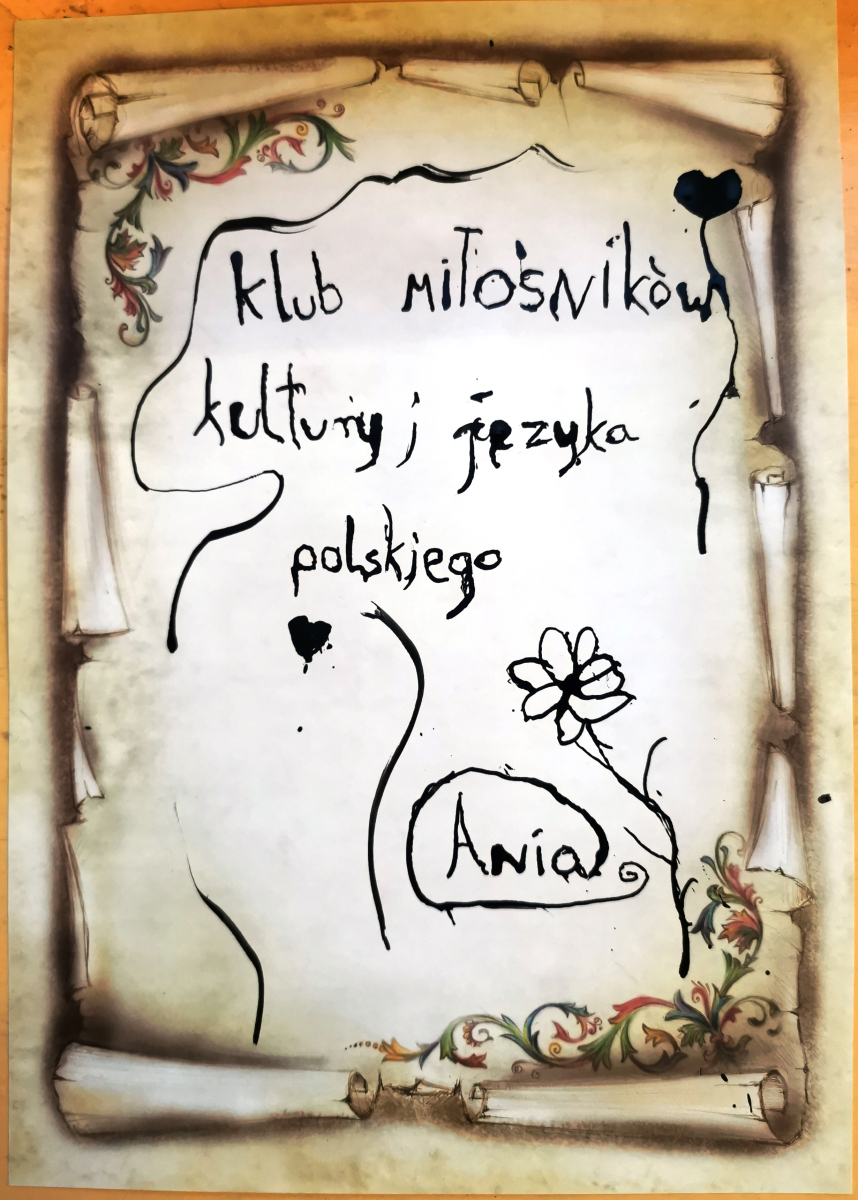 klub miłośników
kultury i języka
polskiego
Ania